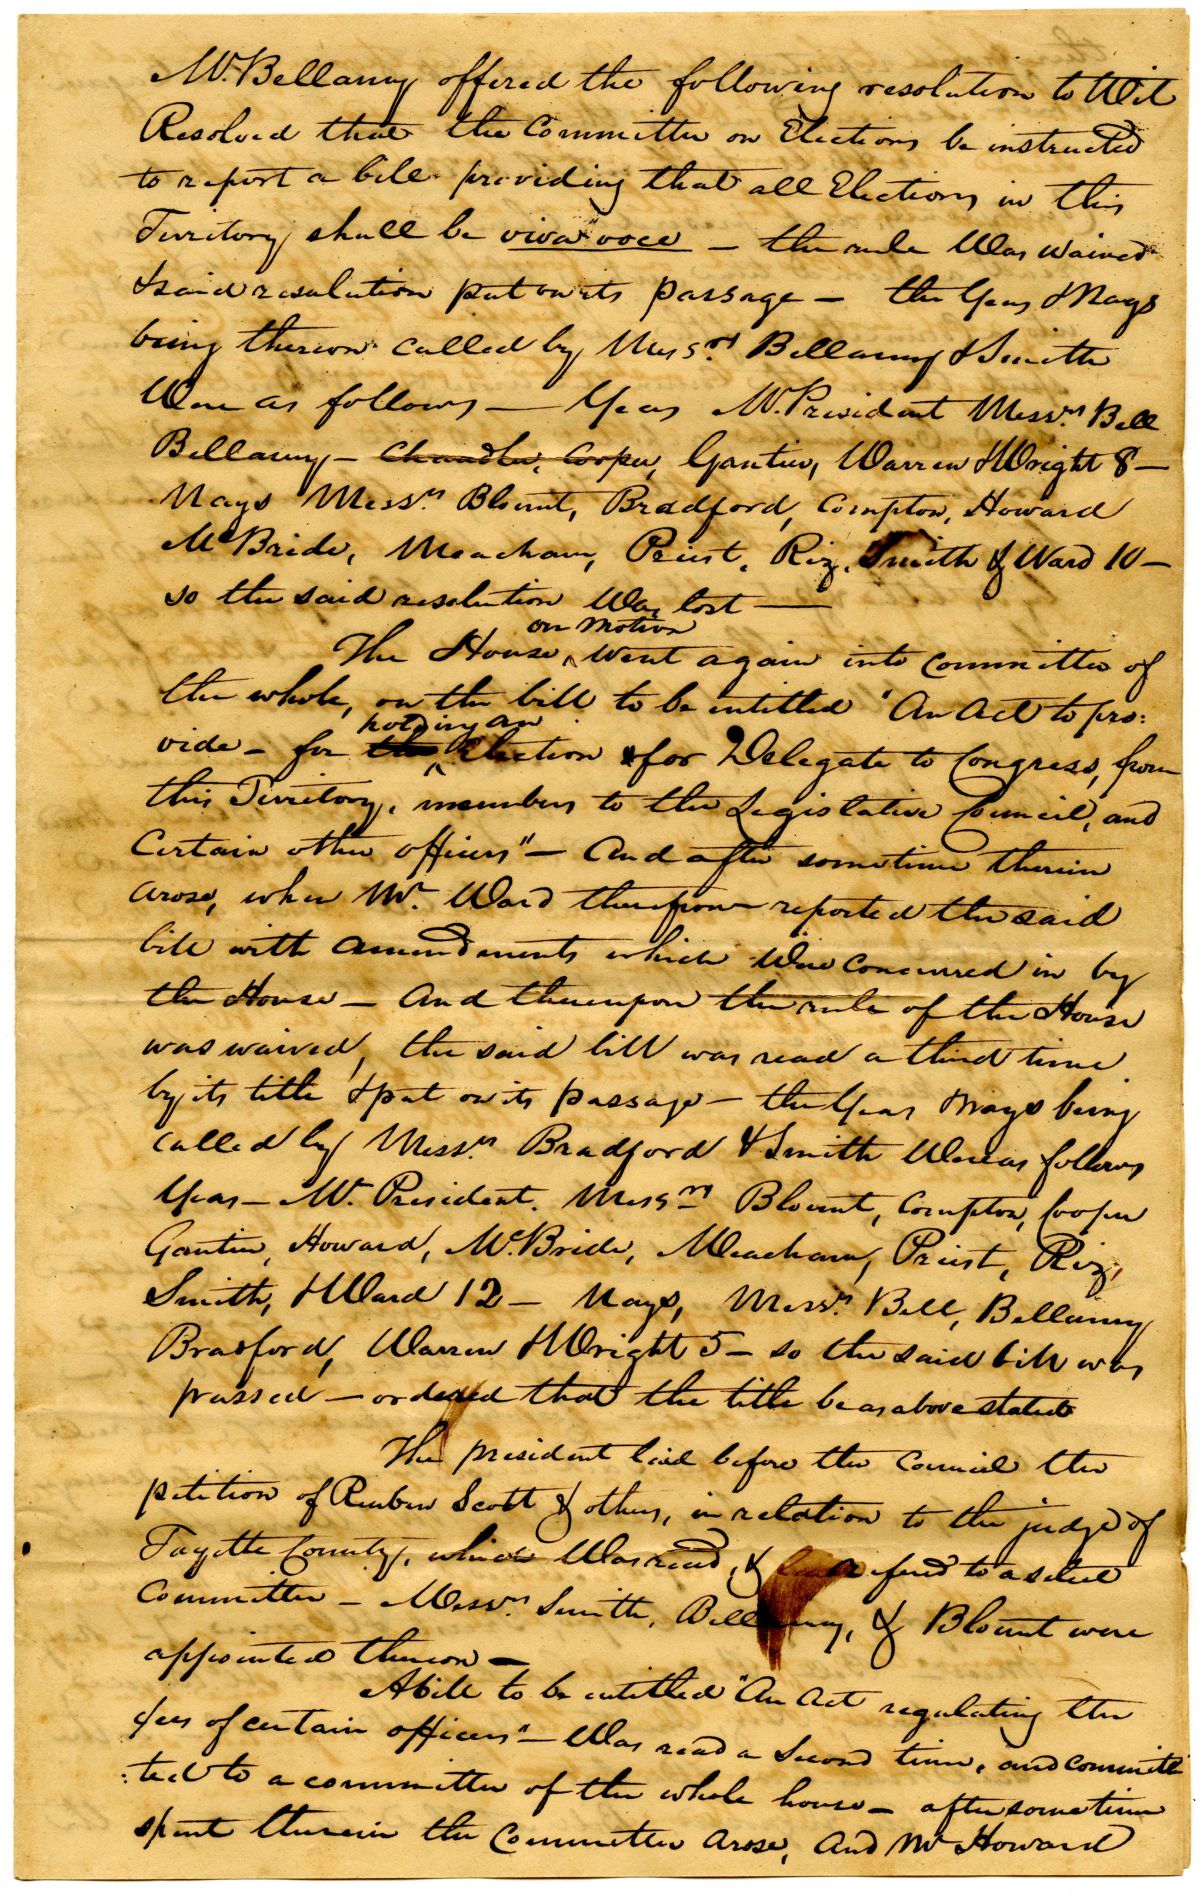 Mr. Bellamy offered the following resolution to Wit
Resolved that the Committee on Elections be instructed
to report a bill providing that all Elections in this
Territory shall be viva voce — the rule Was waived
& said resolution put on its passage — the Yeas & Nays
being thereon called by Messrs. Bellamy & Smith
Were as follows — Yeas Mr. President Messrs. Bell
Bellamy — Chandler, Cooper, Gautier, Warren & Wright 8 —
Nays Messrs. Blount, Bradford, Compton, Howard
McBride, Meacham, Priest, Riz, Smith & Ward 10 —
so the said resolution Was lost —
on motion
The House, Went again into committee of
the whole, on the bill to be entitled "An Act to pro:
holding an
vide — for the Election for Delegate to Congress, from
this Territory, members to the Legislative Council, and
Certain other officers" — And after sometime therein
arose, when Mr. Ward therefrom reported the said
bill with amendments which Were concurred in by
the House — And thereupon the rule of the House
was waived, the said bill was read a third time
by its title & put on its passage — the Yeas & Nays being
called by Messrs. Bradford & Smith Were as follows
Yeas — Mr. President. Messrs. Blount, Compton, Cooper
Gautier, Howard, McBride, Meacham, Priest, Riz,
Smith, & Ward 12 — Nays, Messrs. Bell, Bellamy
Bradford, Warren & Wright 5 — so the said bill was
passed — ordered that the title be as above stated
The president laid before the Council the
petition of Reuben Scott & others, in relation to the judge of
Fayette County, which Was read, & refered to a select
Committee — Messrs. Smith, Bellamy, & Blount were
appointed thereon —
A bill to be entitled "An Act regulating the
fees of certain officers" — Was read a Second time, and committ
:ted to a committee of the whole house — after sometime
spent therein the Committee arose, and Mr Howard